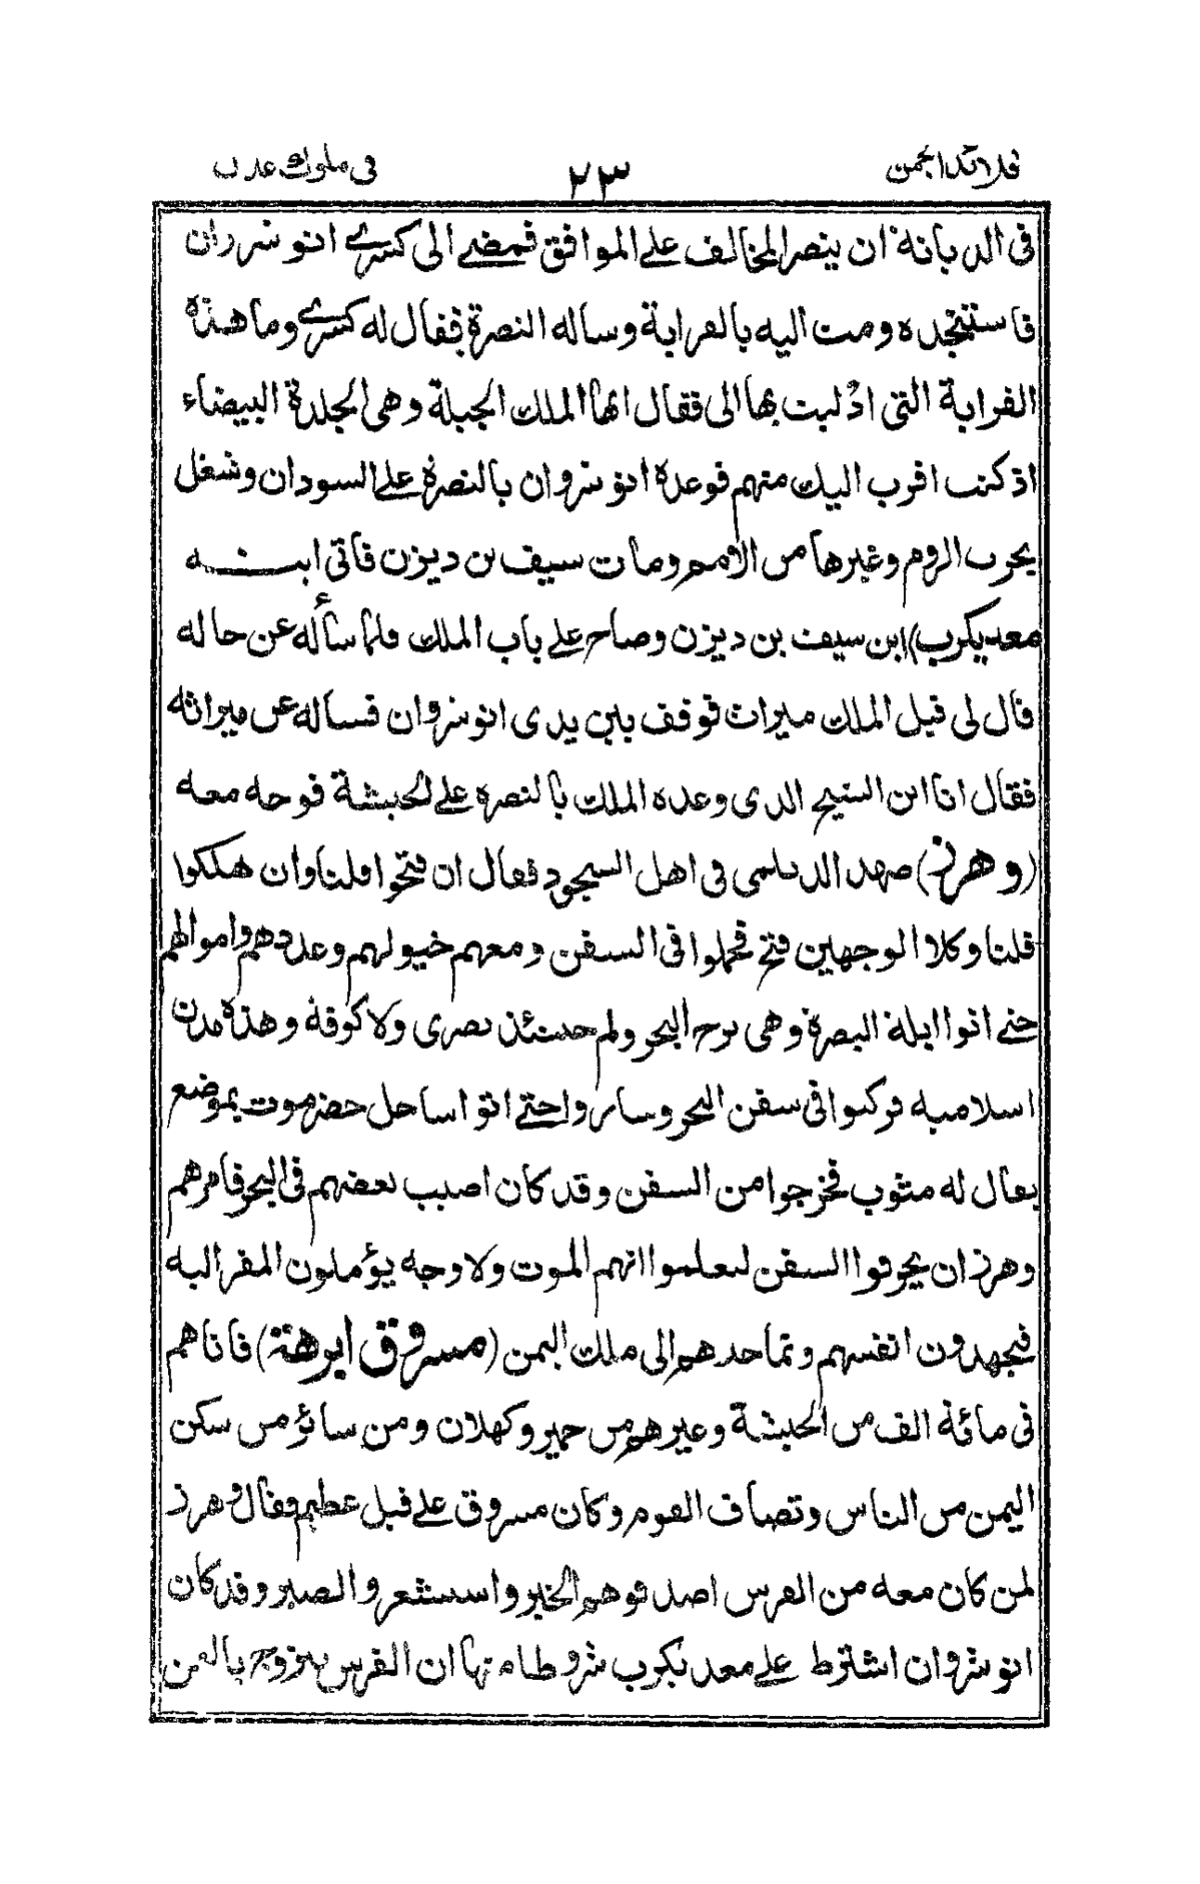 قلائد الجمن ٢٣ فى ملوك عدن
فى الديانة ان ينصر المخالف على الموافق فمضى الى كسرى انو شروان
فاستنجده ومت اليه بالقرابة وساله النصرة فقال له كسرى وما هذه
القرابة التى ادلبت بها الى فقال ايها الملك الجبلة وهى الجلدة البيضاء
اذ كنت اقرب اليك منهم فوعده انو شروان بالنصرة على السودان وشغل
بحرب الروم وغيرها من الامم ومات سيف بن ديزن فاتى ابنه
معديكرب) ابن سيف بن ديزن وصاح على باب الملك فلما سأله عن حاله
قال لى قبل الملك ميراث فوقف بين يدى انو شروان فساله عن ميراثه
فقال انا ابن الشيخ الدى وعده الملك بالنصره على الحبشة فوجه معه
(وهرز) صهبد الديلمى فى اهل السجود فقال ان فتحوا فلنا وان هلكوا
فلنا وكلا الوجهين فتح فحملوا فى السفن ومعهم خيولهم وعددهم واموالهم
حتى اتوا ابلة البصرة وهى برج البحر ولم حينئذ بصرى ولا كوفة وهذه مدن
اسلاميه فركبوا فى سفن البحر وساروا حتى اتوا ساحل حضرموت بموضع
يقال له مثوب فخرجوا من السفن وقد كان اصيب بعضهم فى البحر فامرهم
وهرز ان يحرقوا السفن ليعلموا انهم الموت ولا وجه يؤملون المفر اليه
فيجهدون انفسهم وتماحدهم الى ملك اليمن (مسروق ابرهة) فاتاهم
فى مائة الف من الحبشة وغيرهم من حمير وكهلان ومن سائر من سكن
اليمن من الناس وتصاف القوم وكان مسروق على فيل عظيم وقال وهرز
لمن كان معه من الفرس اصدقوهم الخبر واستشعروا الصبر وقد كان
انو شروان اشترط على معد يكرب شروطا منها ان الفرس يتزوج باليمن